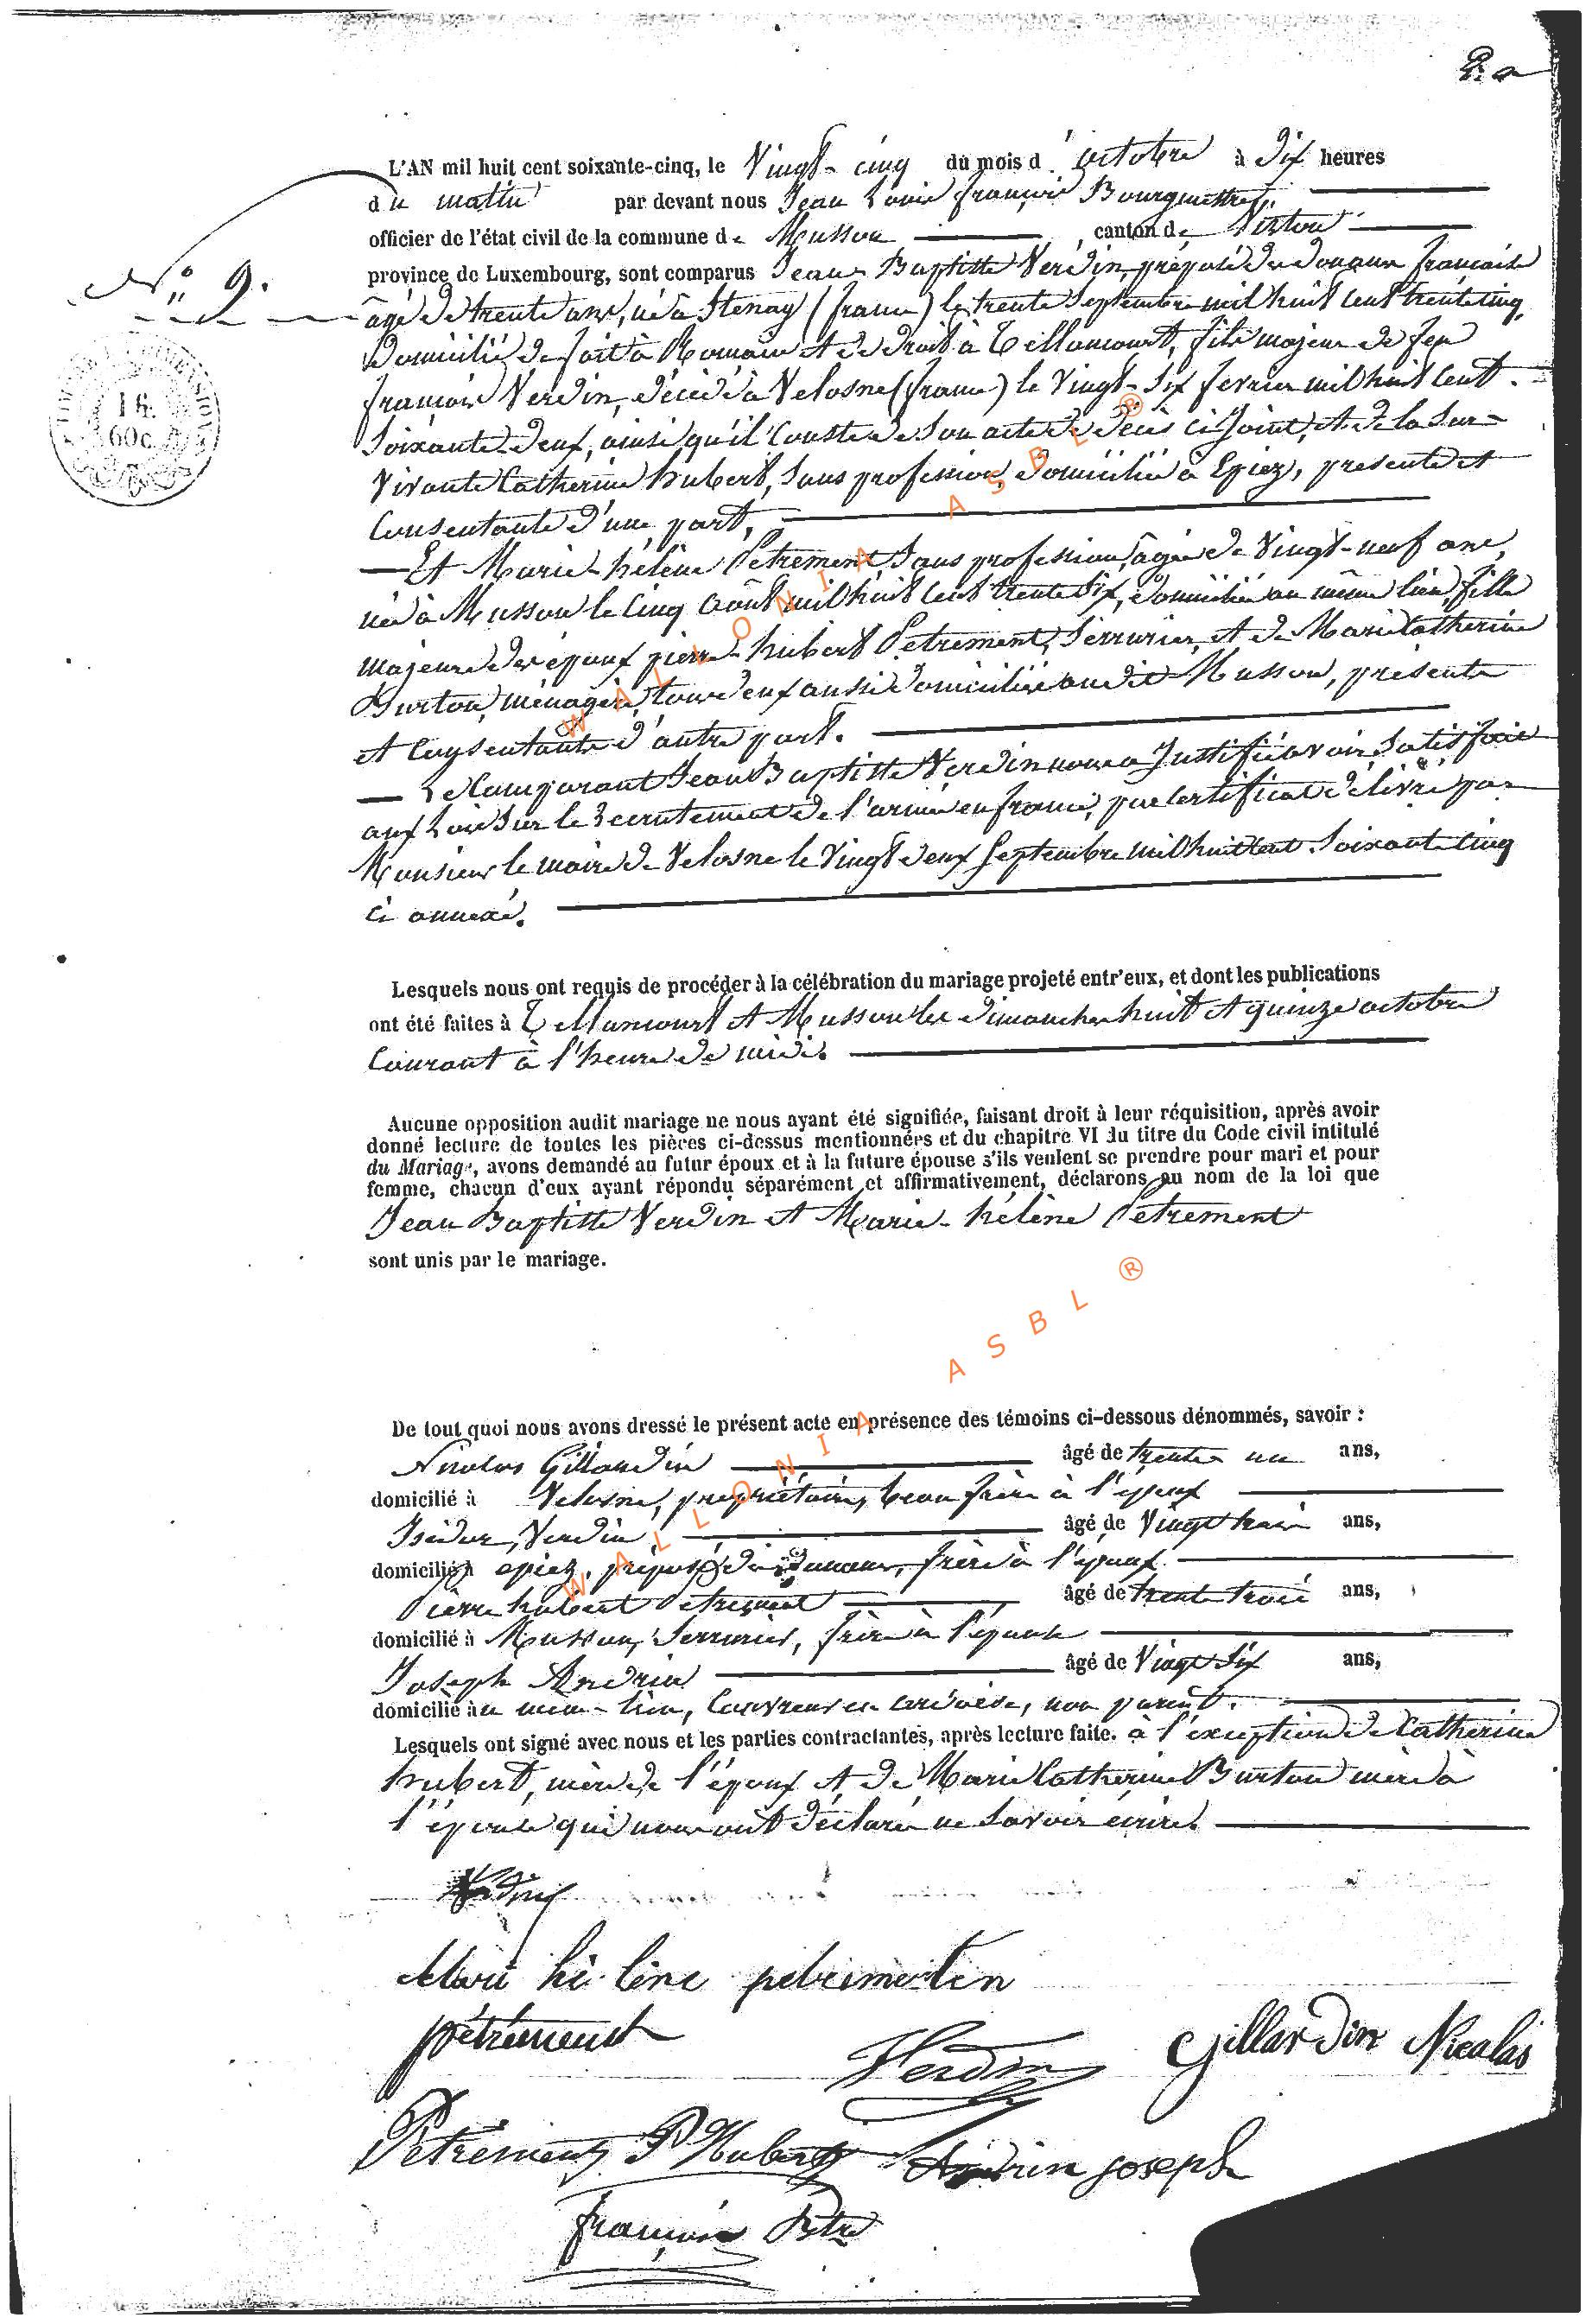 L'AN mil huit cent soixante-cinq, le Vingt-cinq du mois d'octobre à Dix heures
du matin par devant nous Jean Louis françois Bourgmestre
officier de l'état civil de la commune de Musson, canton de Virton
N° 9.
province de Luxembourg, sont comparus Jean Baptiste Verdin, préposé des douanes françaises
âgé de trente ans, né à Stenay (france) le trente Septembre mil huit cent trente cinq,
Domicilié de fait à Romain et de droit à Tellancourt, fils majeur de feu
françois Verdin, décédé à Velosne (france) le Vingt-Six fevrier mil huit cent
Soixante-Deux, ainsi qu'il Conste de Son acte de Décès ci Joint, et de la Sur=
Vivante Catherine hubert, Sans profession, Domiciliée à Epiez, presente et
Consentante d'une part,
— Et Marie-hélène Petrement Sans profession, âgée de Vingt-neuf ans,
née à Musson le Cinq Août mil huit Cent trente Six, Domiciliée au même lieu, fille
majeure des époux pierre-hubert Petrement, Serrurier, et de Marie Catherine
Burton, ménagère, tous deux aussi Domiciliés au dit Musson, présente
et Consentante d'autre part.
— Le Comparant Jean Baptiste Verdin nous a Justifié avoir Satisfait
aux Lois Sur le Recrutement de l'armée en france, par Certificat délivré par
Monsieur le maire de Velosne le Vingt deux Septembre mil huit Cent Soixante Cinq
ci annexé.
Lesquels nous ont requis de procéder à la célébration du mariage projeté entr'eux, et dont les publications
ont été faites à Tellancourt et Musson les Dimanches huit et quinze octobre
Courant à l'heure de midi.
Aucune opposition audit mariage ne nous ayant été signifiée, faisant droit à leur réquisition, après avoir
donné lecture de toutes les pièces ci-dessus mentionnées et du chapitre VI du titre du Code civil intitulé
du Mariage, avons demandé au futur époux et à la future épouse s'ils veulent se prendre pour mari et pour
femme, chacun d'eux ayant répondu séparément et affirmativement, déclarons au nom de la loi que
Jean Baptiste Verdin et Marie-hélène Petrement
sont unis par le mariage.
De tout quoi nous avons dressé le présent acte en présence des témoins ci-dessous dénommés, savoir :
Nicolas Gillardin âgé de trente un ans,
domicilié à Velosne, propriétaire, beau frère à l'époux
Isidor, Verdin âgé de Vingt trois ans,
domicilié à epiez, préposé des Douanes, frère à l'époux
Pierre hubert Petrement âgé de trente trois ans,
domicilié à Musson, Serrurier, frère à l'épouse
Joseph Andrin âgé de Vingt Six ans,
domicilié au même lieu, Couvreur en ardoises, non parent.
Lesquels ont signé avec nous et les parties contractantes, après lecture faite. à l'exception de Catherine
hubert, mère de l'époux et de Marie Catherine Burton mère à
l'épouse qui nous ont déclaré ne Savoir écrire.
Verdin
Mari hé lène petrement
pétrement
Verdin Gillardin Nicolas
Petrement P Hubert Andrin joseph
françois
WALLONIA ASBL ®
WALLONIA ASBL ®